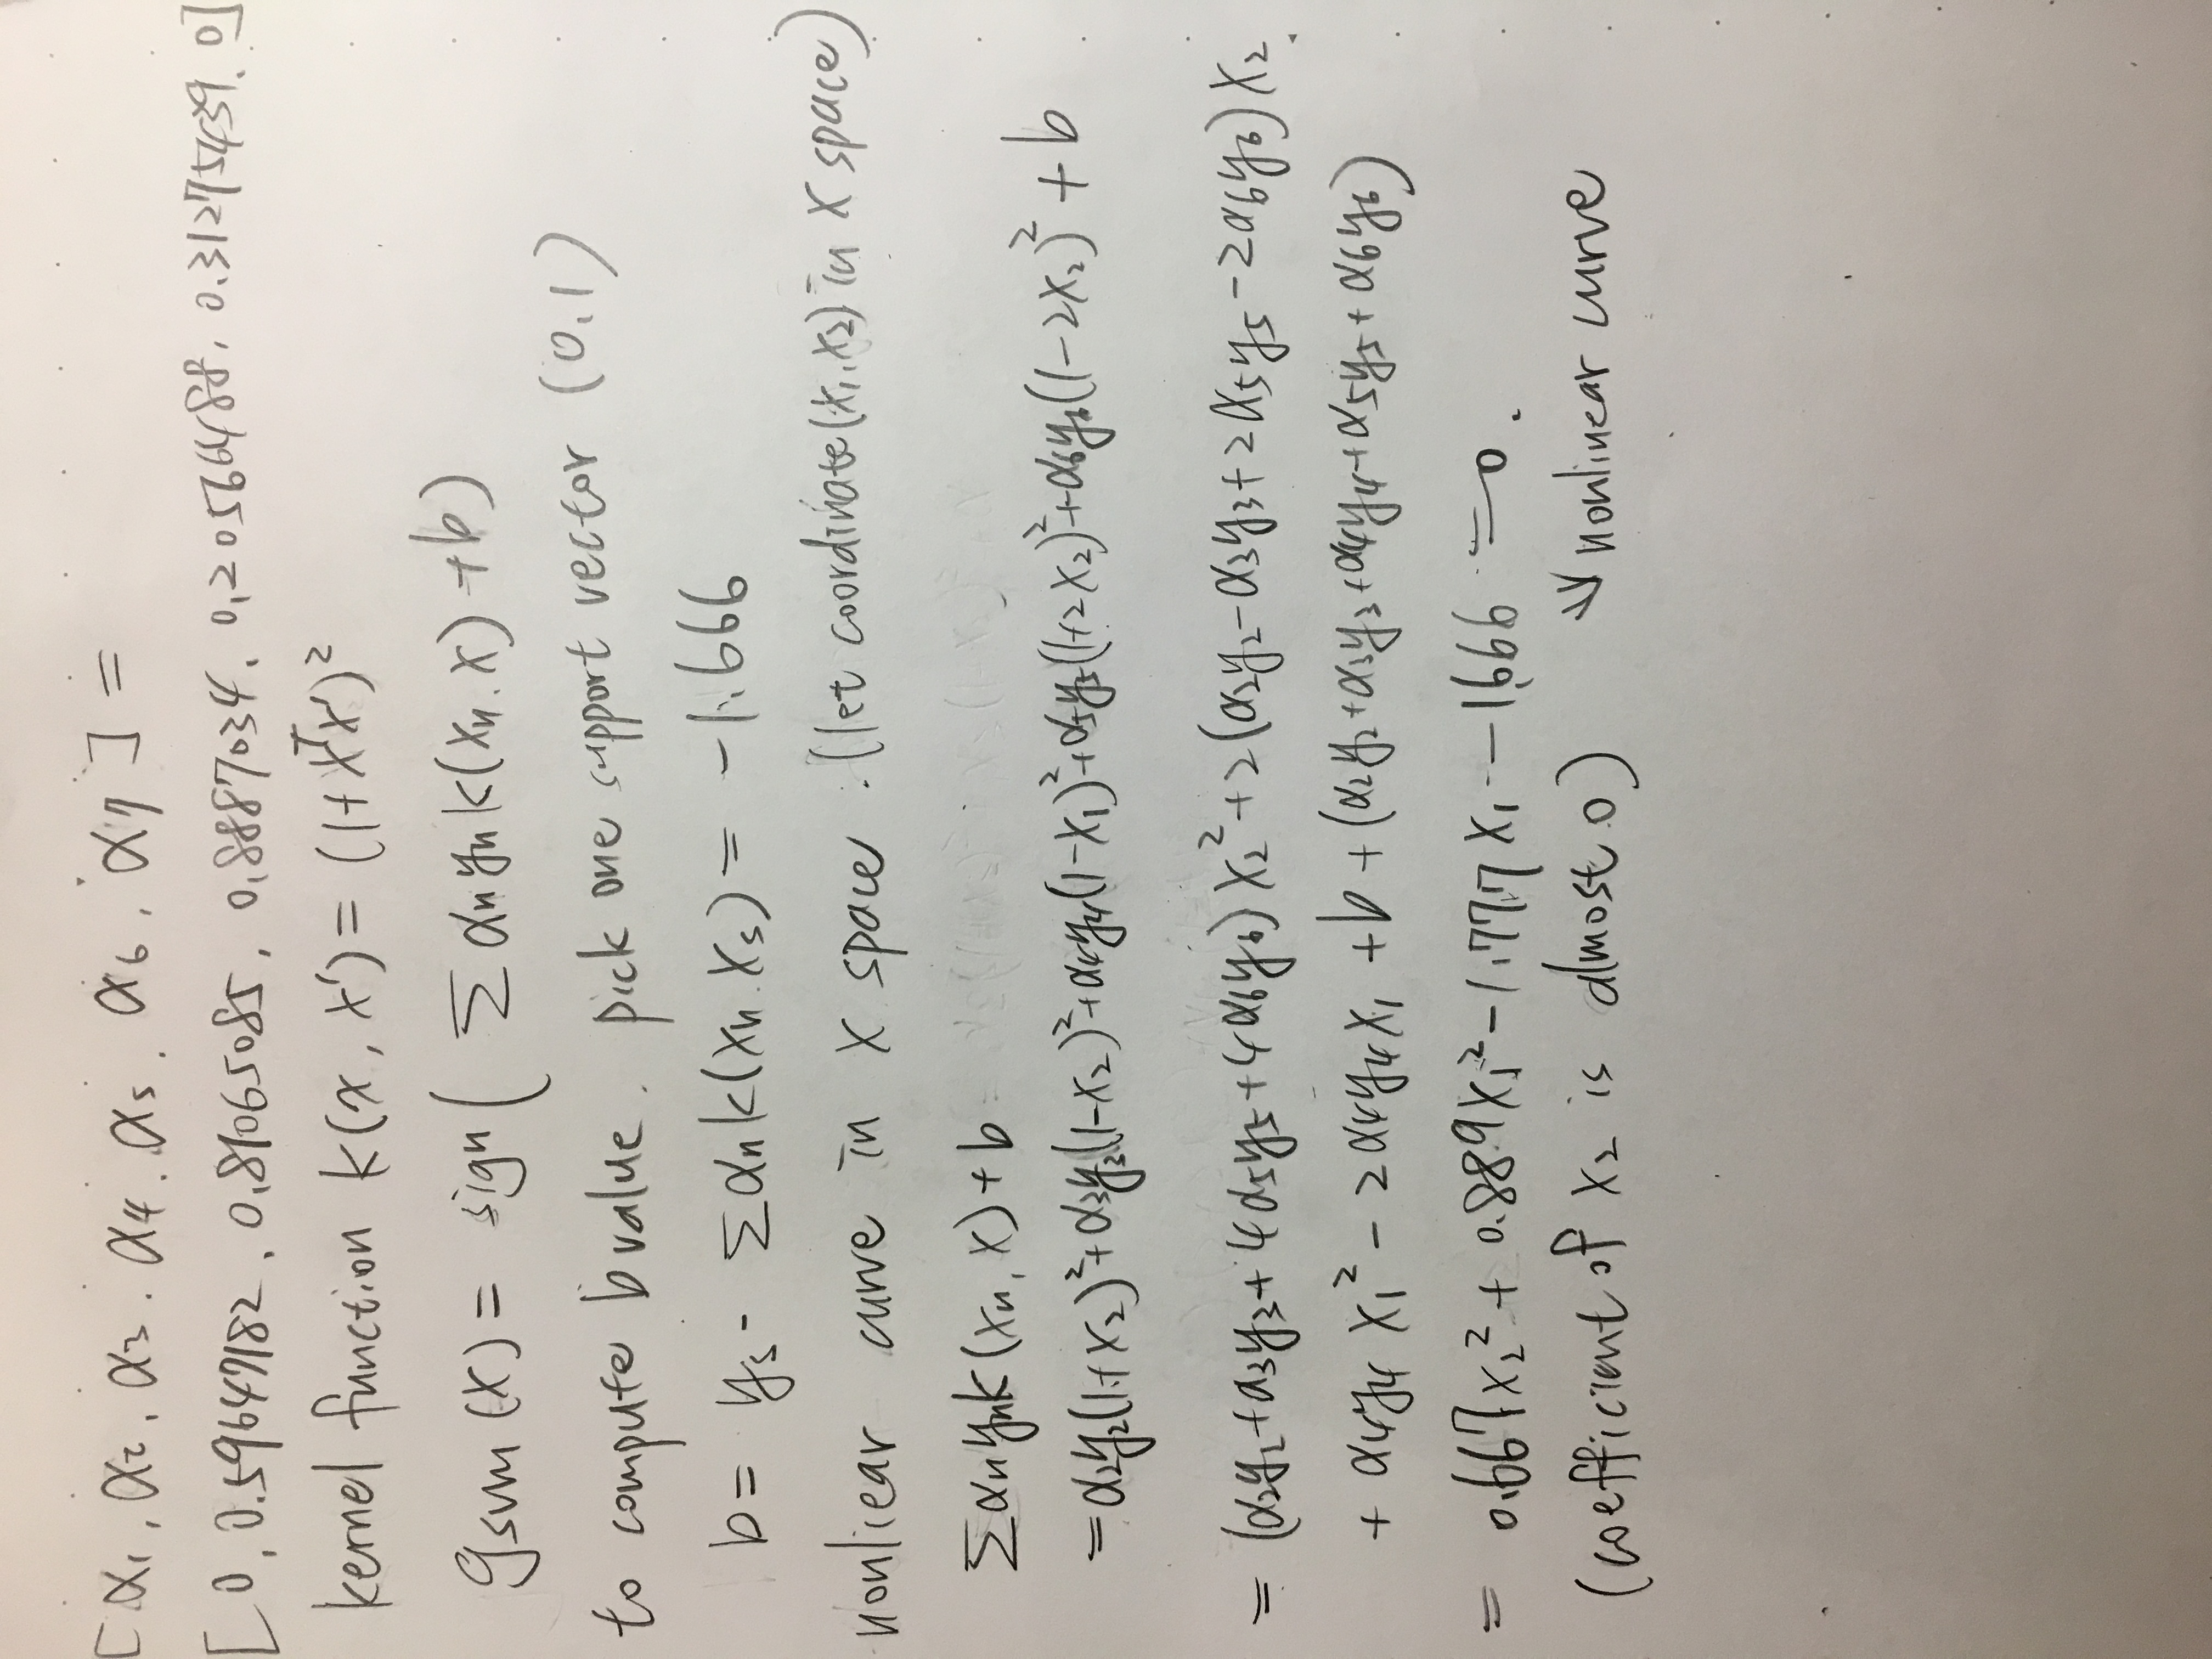 [α₁, α₂, α₃, α₄, α₅, α₆, α₇] =
[0, 0.59647182, 0.81065085, 0.8887034, 0.20566488, 0.31275439, 0]
kernel function k(x, x') = (1+xᵀx')²
gsvm(x) = sign( Σ αₙyₙk(xₙ, x) + b)
to compute b value. pick one support vector (0,1)
b = y₅ - Σαₙk(xₙ, x₅) = -1.666
nonliear curve in X space. (let coordinate (x₁, x₂) in X space)
Σαₙyₙk(xₙ, x) + b
= α₂y₂(1+x₂)² + α₃y₃(1-x₂)² + α₄y₄(1-x₁)² + α₅y₅(1+2x₂)² + α₆y₆(1-2x₂)² + b
= (α₂y₂+α₃y₃+4α₅y₅+4α₆y₆)x₂² + 2(α₂y₂-α₃y₃+2α₅y₅-2α₆y₆)x₂
+ α₄y₄x₁² - 2α₄y₄x₁ + b + (α₂y₂+α₃y₃+α₄y₄+α₅y₅+α₆y₆)
= 0.667x₂² + 0.889x₁² - 1.777x₁ - 1.666 = 0.
(coefficient of x₂ is almost 0) ⇓ nonlinear curve